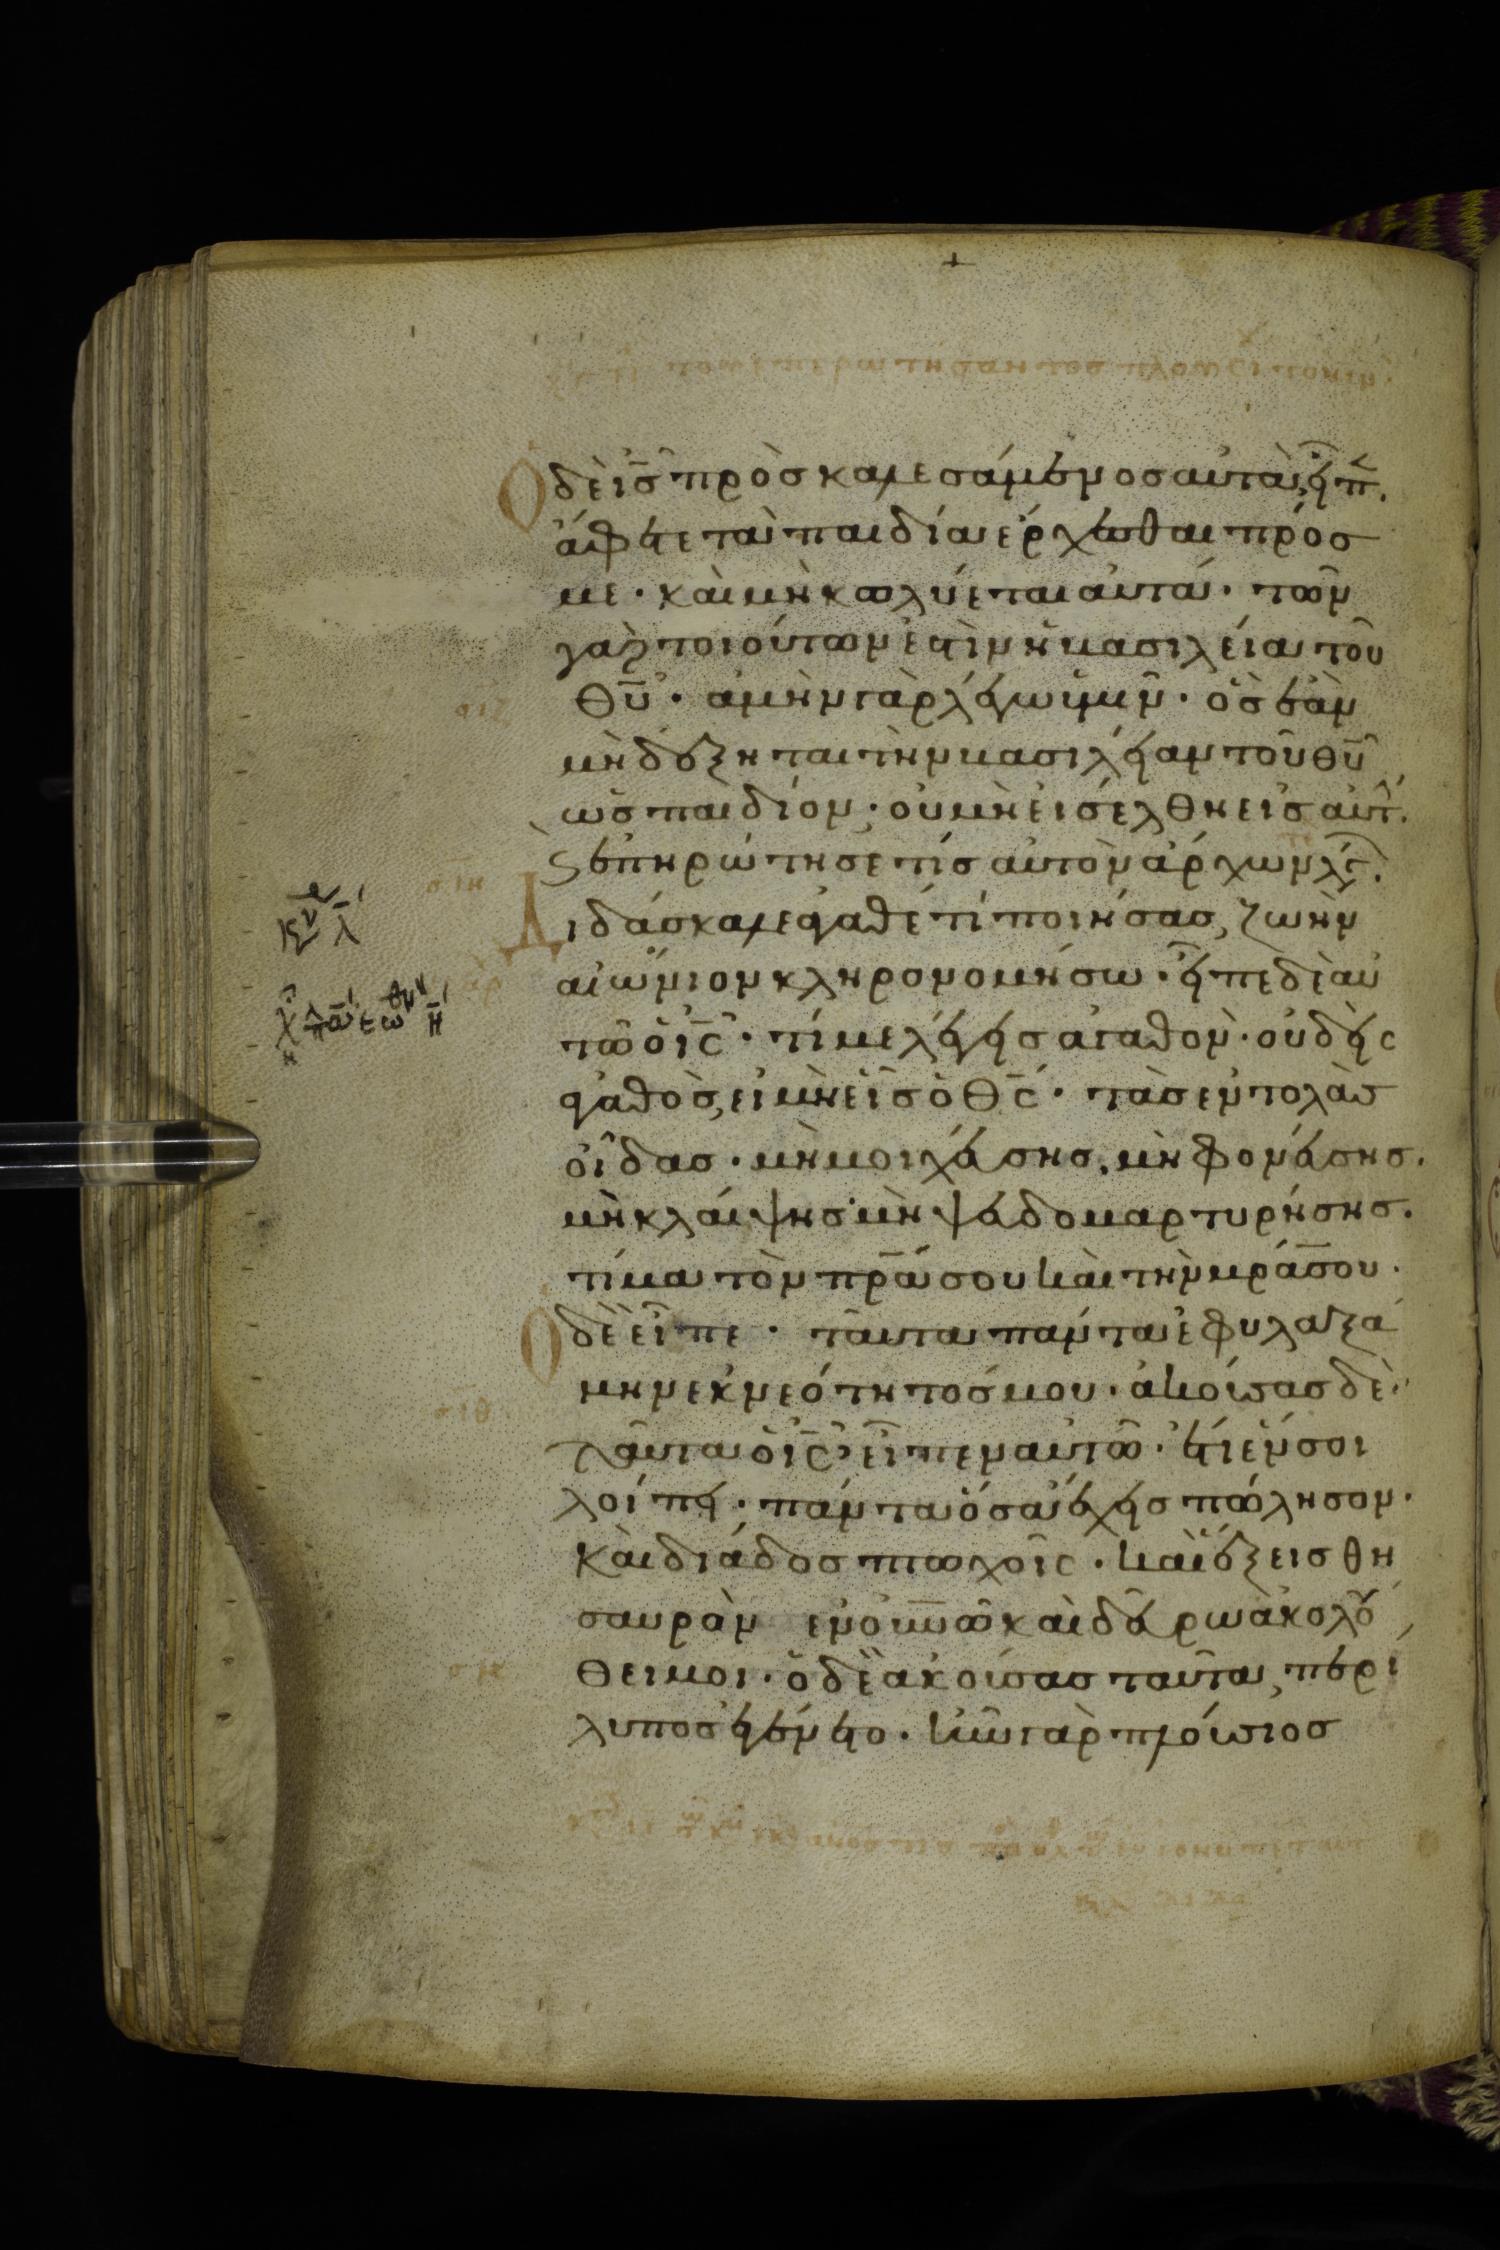 Ὁ δὲ ἰ̅ς̅ προσκαλεσάμενος αὐτὰ, εἶπ.
ἄφετε τὰ παιδία ἔρχεσθαι πρός
με · καὶ μὴ κωλύεται αὐτά · τῶν
γὰρ τοιούτων ἐστὶν ἡ βασιλεία τοῦ
θ̅υ̅ · ἀμὴν γὰρ λέγω ὑμῖν · ὃς ἐὰν
μὴ δέξηται τὴν βασιλείαν τοῦ θ̅υ̅
ὡς παιδίον · οὐ μὴ εἰσέλθη εἰς αὐτ.
Ϛ ἐπηρώτησε τίς αὐτὸν ἄρχων λέγ.
Διδάσκαλε ἀγαθέ τί ποιήσας, ζωὴν
αἰώνιον κληρονομήσω · εἶπε δὲ αὐ
τῶ ὁ ἰ̅ς̅ · τί με λέγεις ἀγαθὸν · οὐδεὶς
ἀγαθὸς, εἰ μὴ εἷς ὁ θ̅ς̅ · τὰς ἐντολὰς
οἶδας · μὴ μοιχεύσης. μὴ φονεύσης.
μὴ κλέψης · μὴ ψευδομαρτυρήσης.
τίμα τὸν π̅ρ̅α̅ σου καὶ τὴν μ̅ρ̅α̅ σου ·
Ὁ δὲ εἶπε · ταῦτα πάντα ἐφυλαξά
μην ἐκ νεότητός μου · ἀκούσας δὲ
ταῦτα ὁ ἰ̅ς̅ εἶπεν αὐτῶ · ἔτι ἕν σοι
λοίπει · πάντα ὅσα ἔχεις πώλησον ·
καὶ διάδος πτωχοῖς · καὶ ἕξεις θη
σαυρὸν ἐν ο̅υ̅ν̅ω̅ καὶ δεῦρω ἀκολού
θει μοι · ὁ δὲ ἀκούσας ταῦτα, περί
λυπος ἐγένετο · ἦν γὰρ πλούσιος